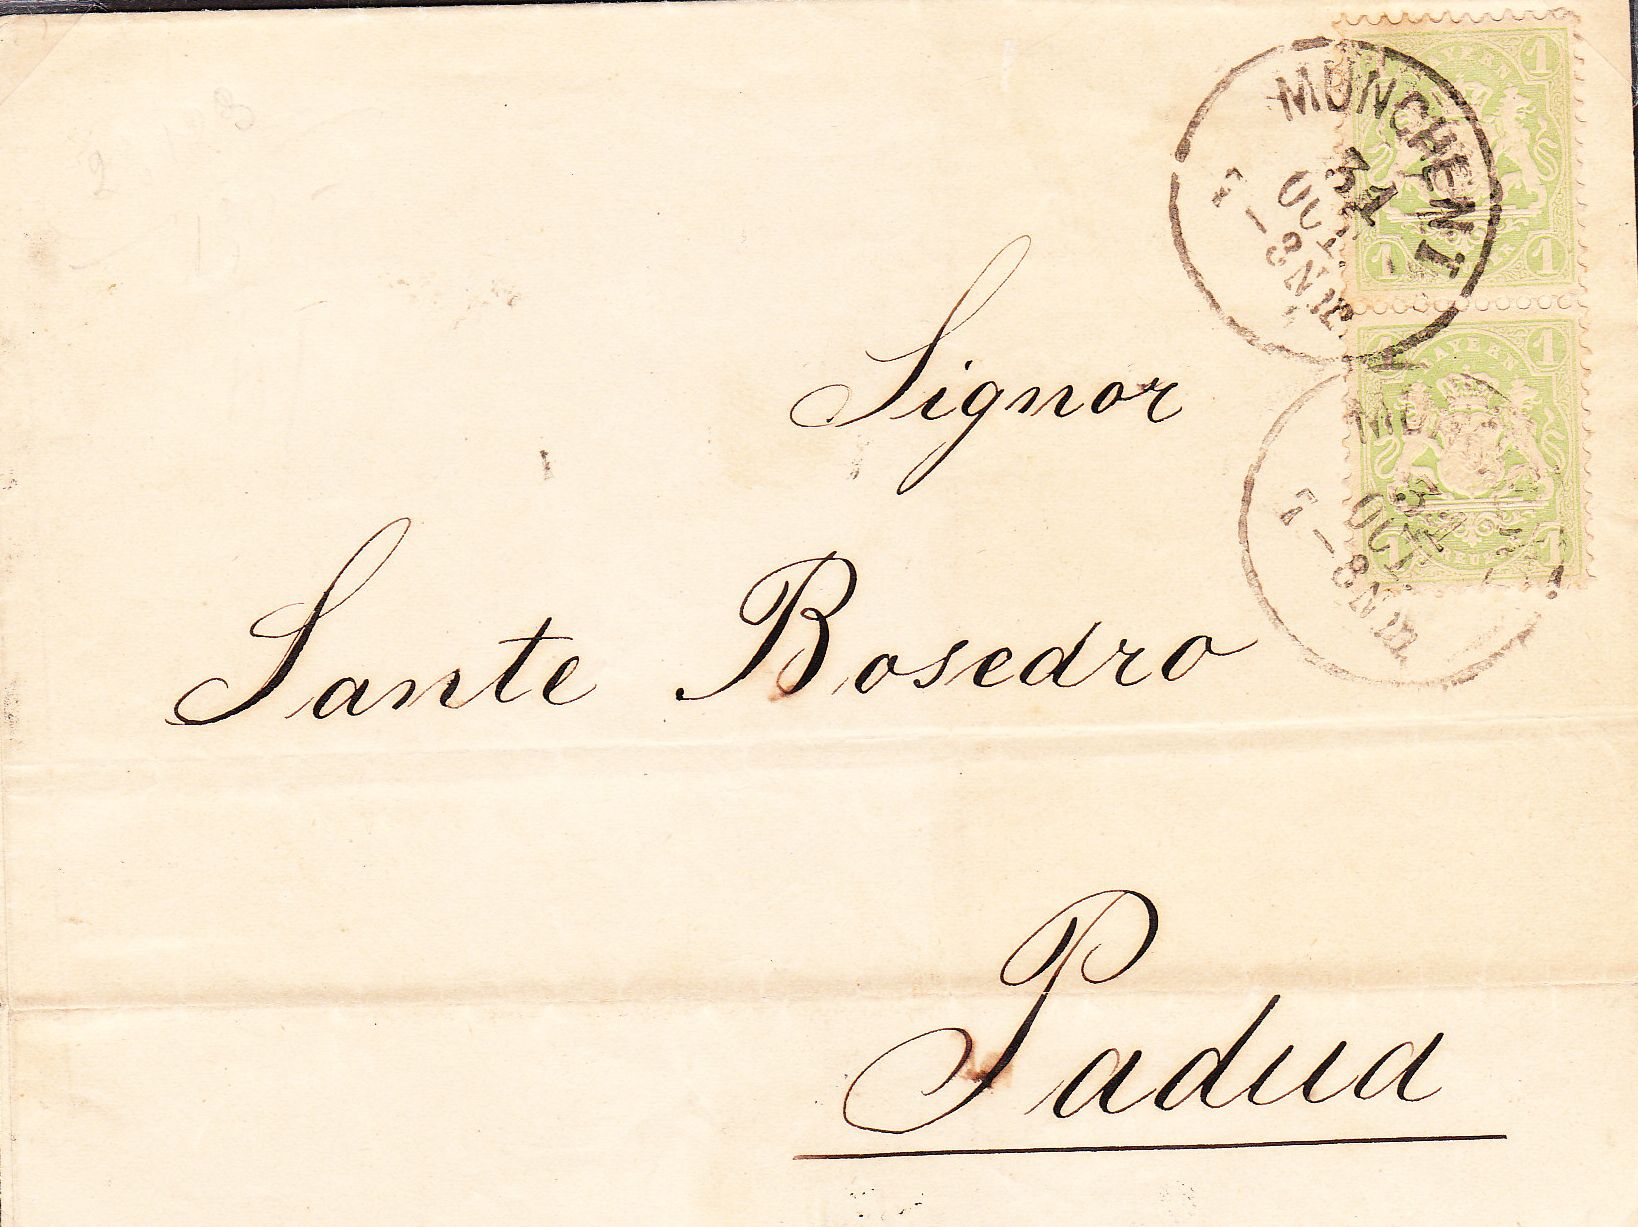 MÜNCHEN I
31
OCT.
7-8 NM.
1
1
1
BAYERN
1
1
Signor
Sante Bosedro
Padua